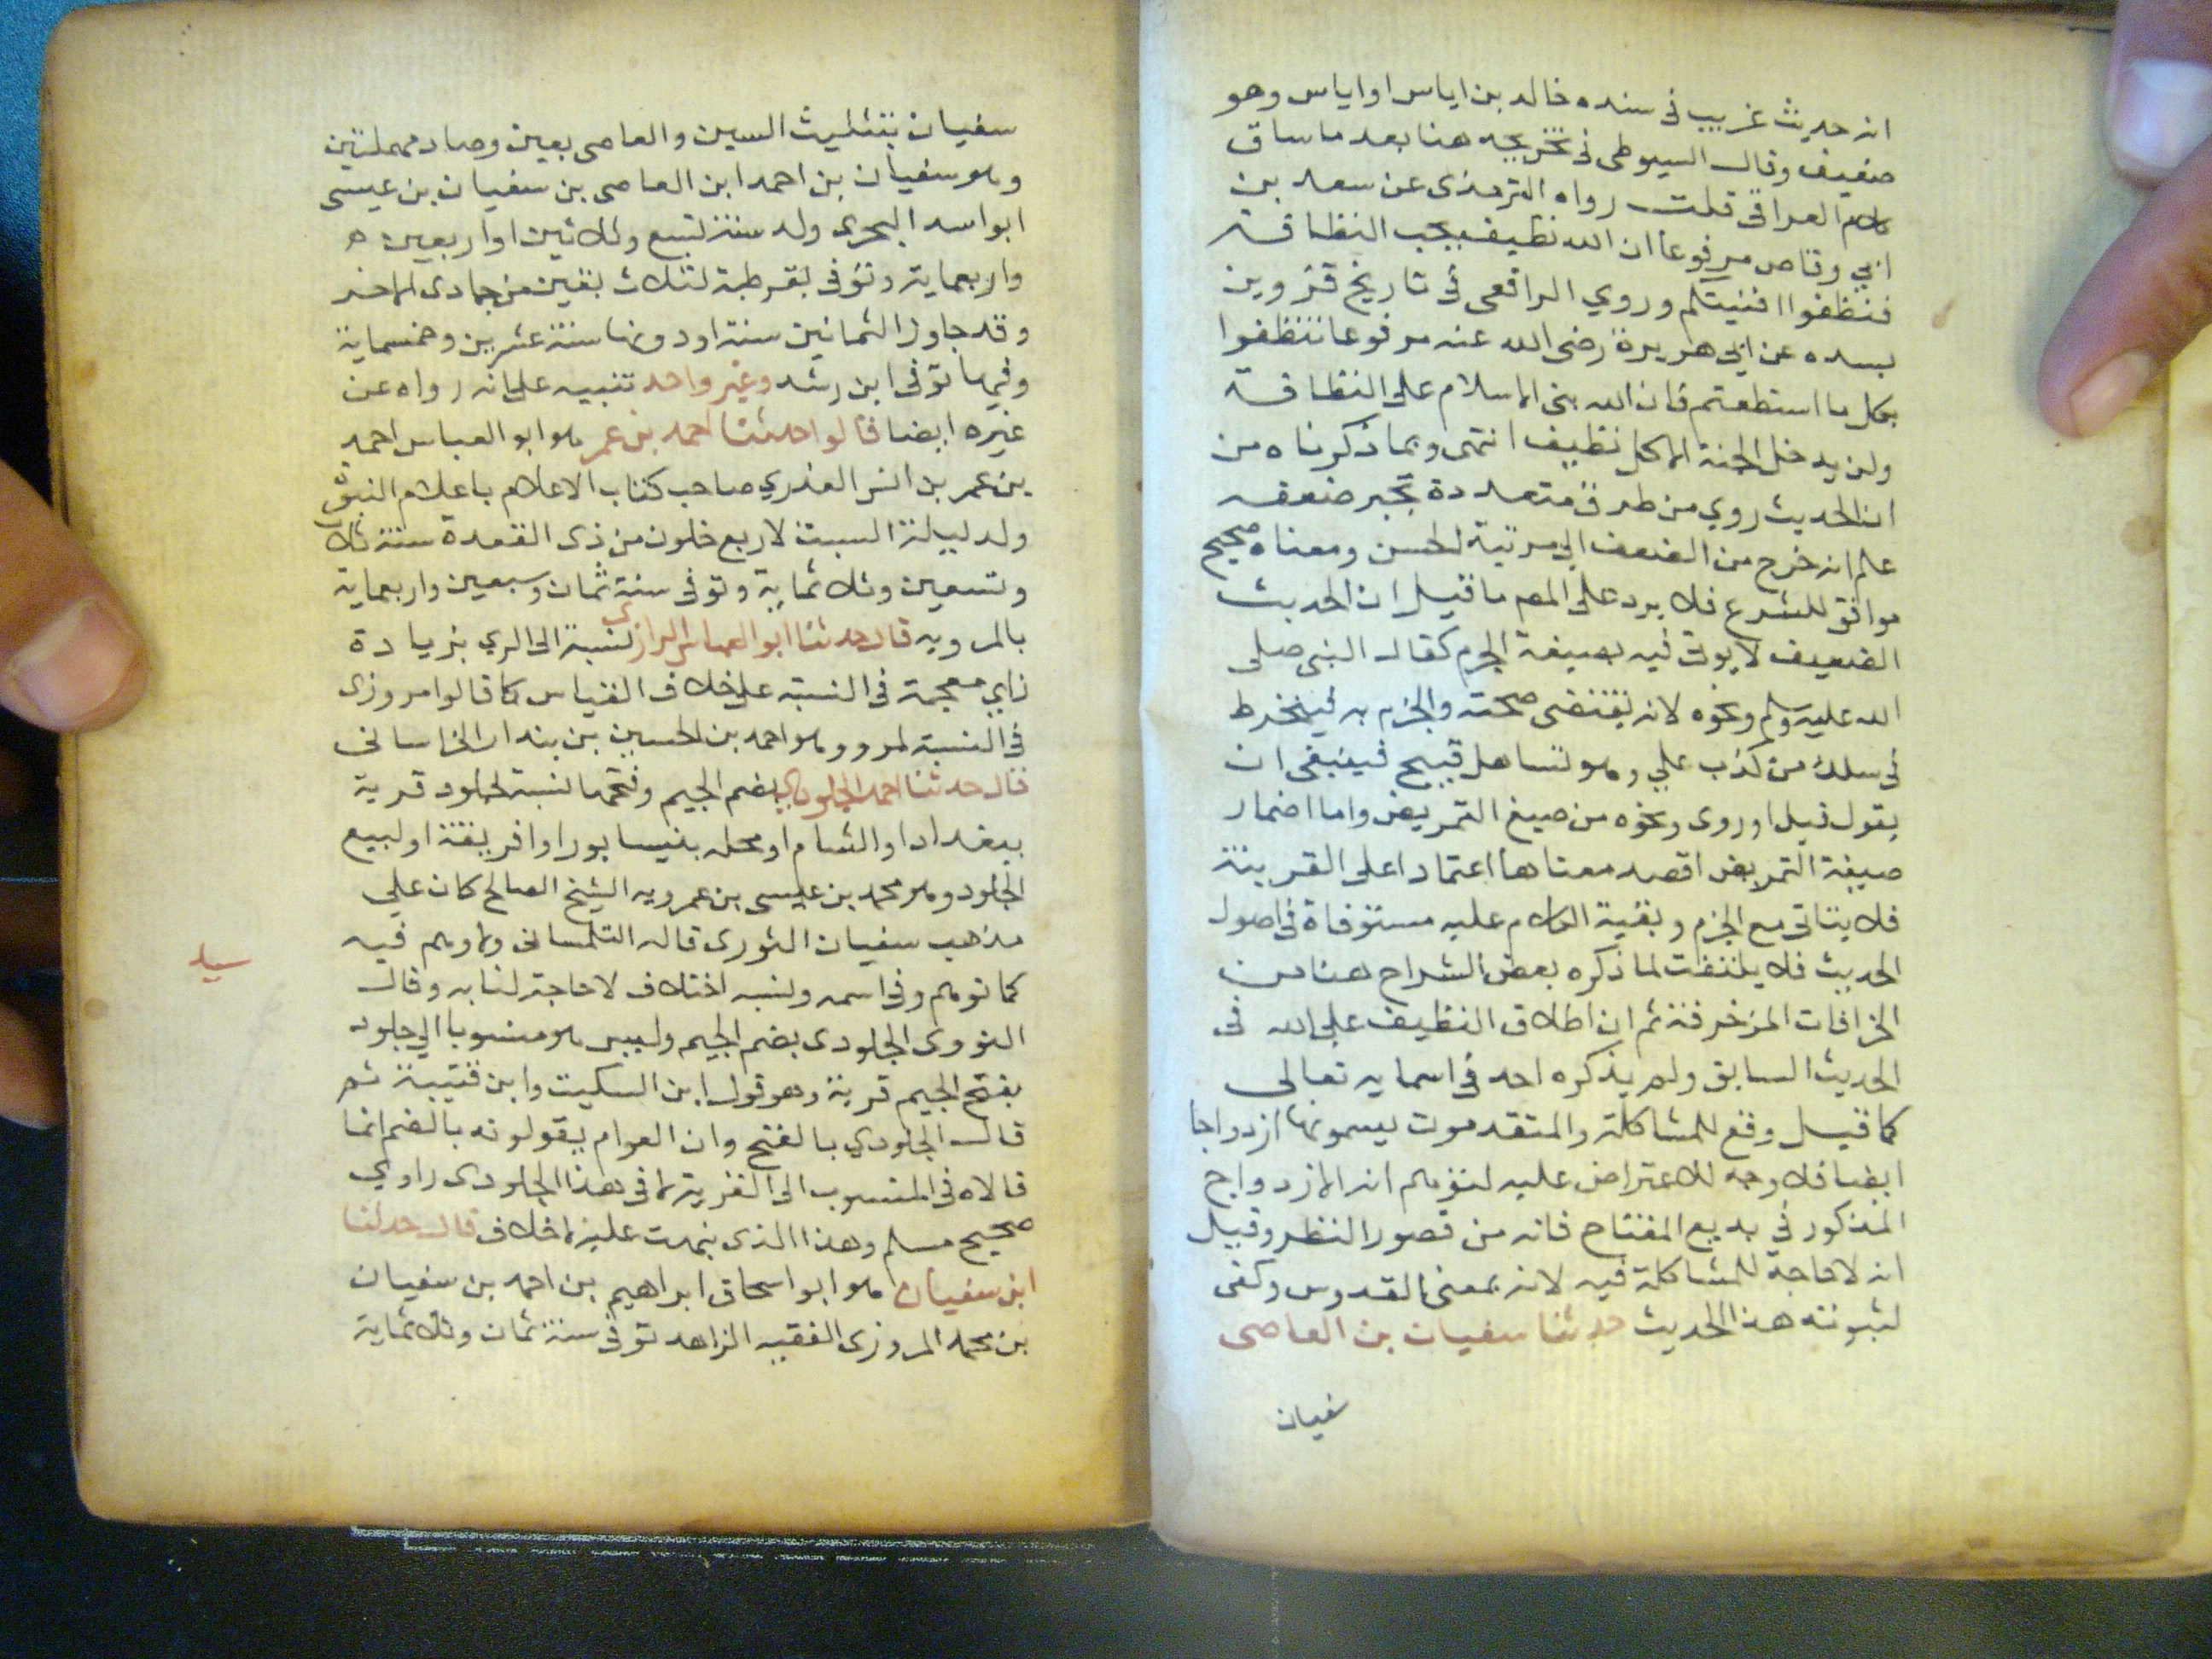 انه حديث غريب في سنده خالد بن اياس او اياس وهو
ضعيف وقال السيوطي في تخريجه هنا بعد ما ساق
كلام العراقي قلت رواه الترمذي عن سعد بن
ابي وقاص مرفوعا ان الله نظيف يحب النظافة
فنظفوا افنيتكم وروي الرافعي في تاريخ قزوين
بسنده عن ابي هريرة رضى الله عنه مرفوعا تنظفوا
بكل ما استطعتم فان الله بنى الاسلام على النظافة
ولن يدخل الجنة الا كل نظيف انتهى وبما ذكرناه من
ان الحديث روي من طرق متعددة تجبر ضعفه
علم انه خرج من الضعف الى مرتبة الحسن ومعناه صحيح
موافق للشرع فلا يرد على المص ما قيل ان الحديث
الضعيف لا يوت فيه بصيغة الجزم كقال النبى صلى
الله عليه وسلم ونحوه لانه يقتضى صحته والجزم به فينخرط
في سلك من كذب علي وهو تساهل قبيح فينبغى ان
يقول قيل او روى ونحوه من صيغ التمريض واما اضمار
صيغة التمريض اقصد معناها اعتمادا على القرينة
فلا يتاتى مع الجزم وبقية الكلام عليه مستوفاة في اصول
الحديث فلا يلتفت لما ذكره بعض الشراح هنا من
الخرافات المزخرفة ثم ان اطلاق النظيف على الله في
الحديث السابق ولم يذكره احد في اسمايه تعالى
كما قيل وقع للمشاكلة والمتقدمون يسمونها ازدواجا
ايضا فلا وجه للاعتراض عليه لتوهم انه الازدواج
المذكور في بديع المفتاح فانه من قصور النظر وقيل
انه لا حاجة للمشاكلة فيه لانه بمعنى القدوس وكفى
لثبوته هذا الحديث حدثنا سفيان بن العاصى
سفيان
سفيان بتثليث السين والعاصى بعين وصاد مهملتين
وهو سفيان بن احمد ابن العاصى بن سفيان بن عيسى
ابو اسد البحرى ولد سنة تسع وثلاثين او اربعين
واربعماية وتوفى بقرطبة لثلاث بقين من جمادى الاخر
وقد جاوز الثمانين سنة او دونها سنة عشرين وخمسماية
وفيها توفى ابن رشد وغير واحد تنبيه على انه رواه عن
غيره ايضا قالوا حدثنا احمد بن عمر هو ابو العباس احمد
بن عمر بن انس العذري صاحب كتاب الاعلام باعلام النبوة
ولد ليلة السبت لاربع خلون من ذى القعدة سنة ثلاث
وتسعين وثلاثماية وتوفى سنة ثمان وسبعين واربعماية
بالمرويه قال حدثنا ابو العباس الرازي نسبة الى الري بزيادة
زاي معجمة في النسبة على خلاف القياس كما قالوا مروزى
في النسبة لمرو وهو احمد بن الحسين بن بندار الخراسانى
قال حدثنا احمد الجلودي بضم الجيم وفتحها نسبة لجلود قرية
ببغداد او الشام او محله بنيسابور او افريقة او لبيع
الجلود وهو محمد بن عيسى بن عمرويه الشيخ الصالح كان علي
مذهب سفيان الثورى قاله التلمسانى ولا وهم فيه
كما توهم وفى اسمه ونسبه اختلاف لا حاجة لنا به وقال
النووى الجلودى بضم الجيم وليس هو منسوبا الى جلود
بفتح الجيم قرية وهو قول ابن السكيت وابن قتيبة ثم
قال الجلودي بالفتح وان العوام يقولونه بالضم انما
قالاه فى المنسوب الى القرية لا في هذا الجلودى راوي
صحيح مسلم وهذا الذى نبهت عليه لا خلاف قال حدثنا
ابن سفيان هو ابو اسحاق ابراهيم بن احمد بن سفيان
بن محمد المروزى الفقيه الزاهد توفى سنة ثمان وثلاثماية